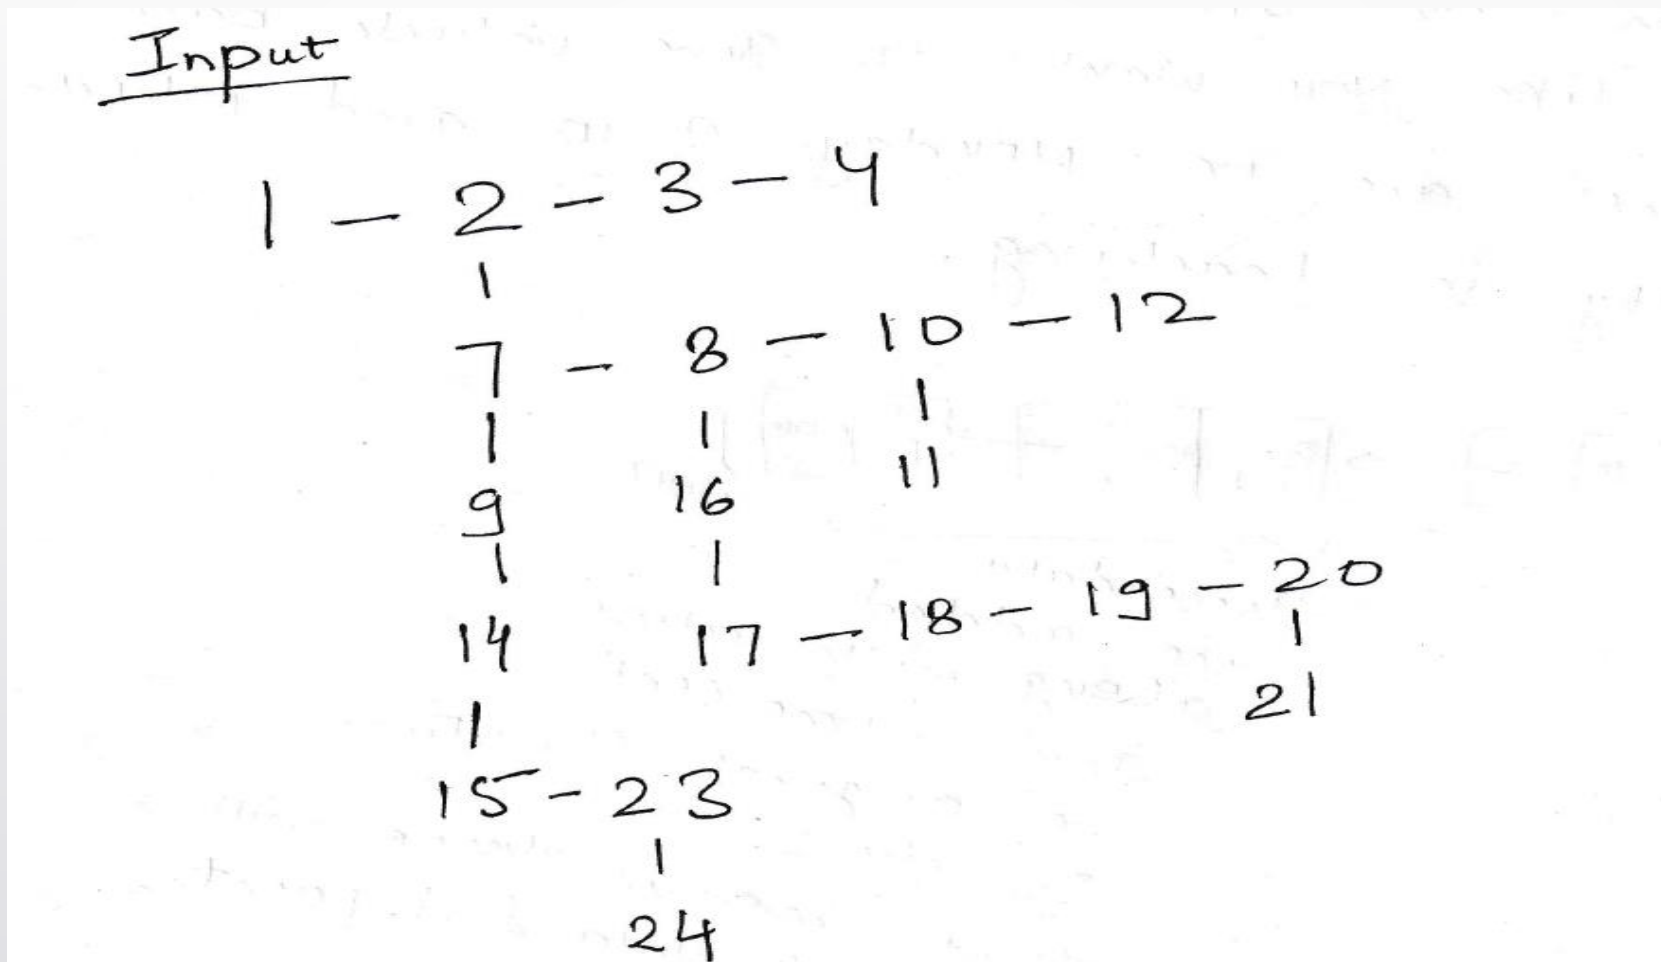 Input
1 - 2 - 3 - 4
7 - 8 - 10 - 12
9 16 11
14 17 - 18 - 19 - 20
15 - 23 21
24